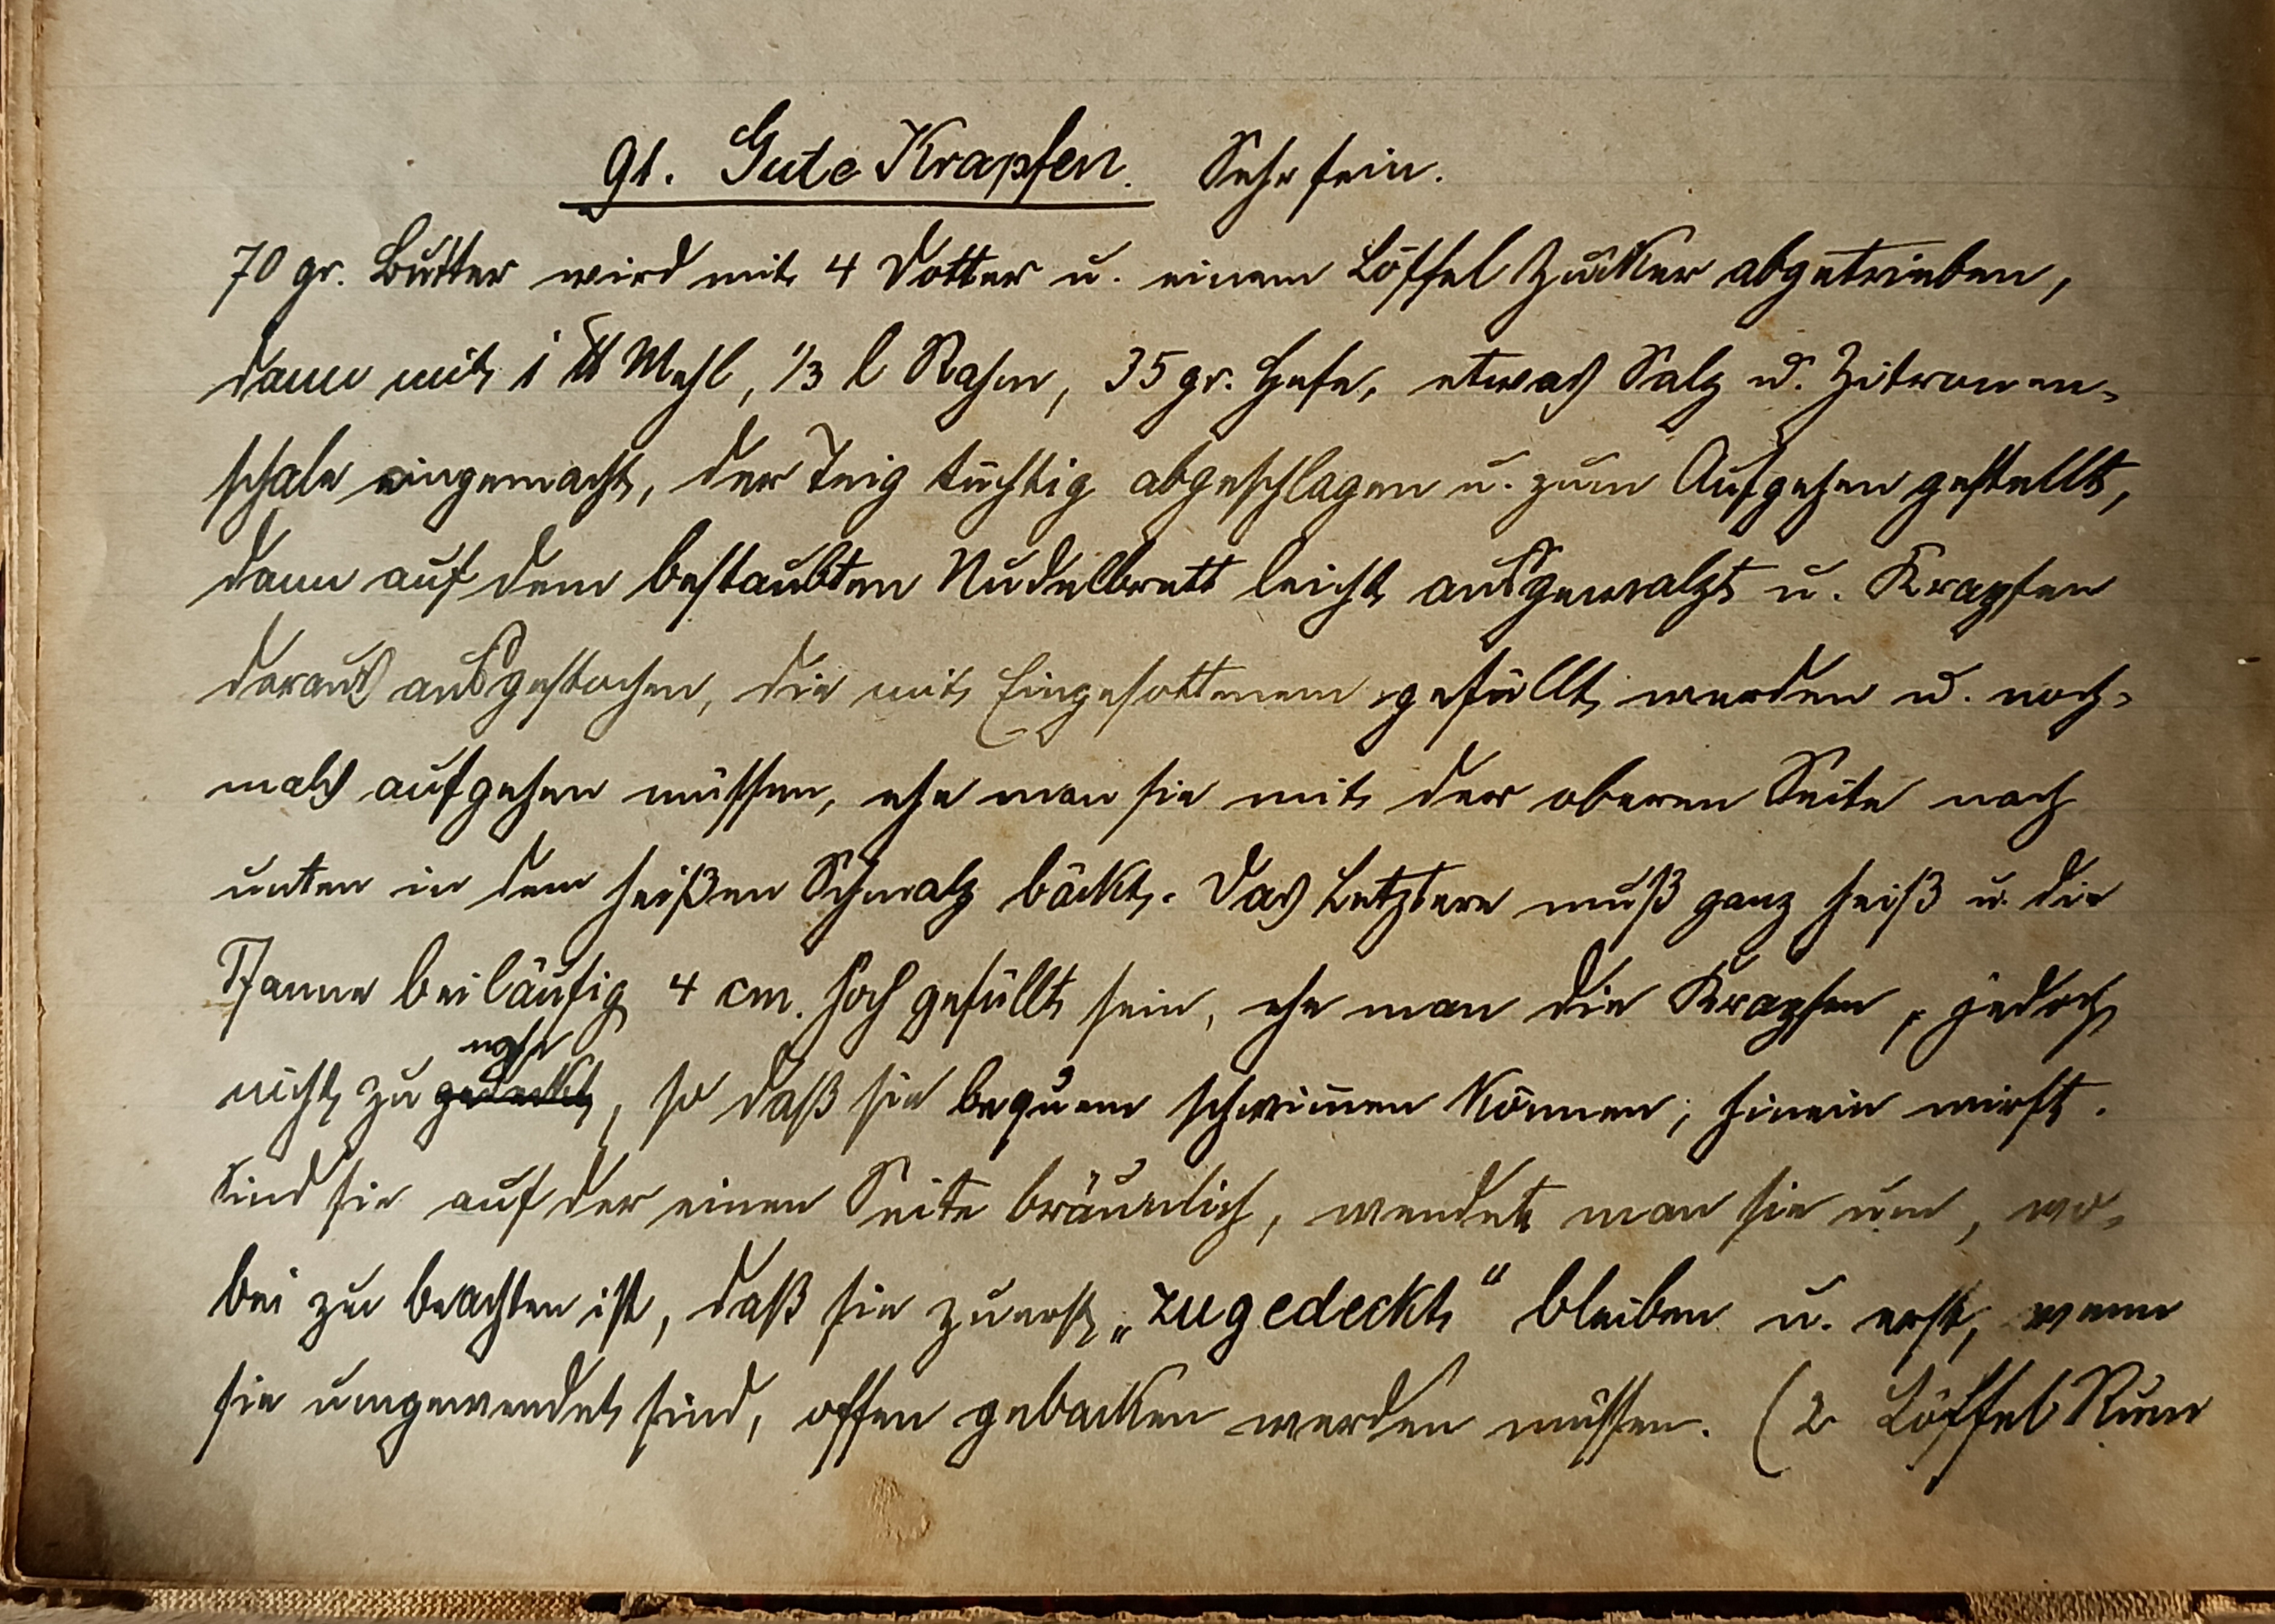 91. Gute Krapfen. Sehr fein.
70 gr. Butter wird mit 4 Dotter u. einem Löffel Zucker abgetrieben,
dann mit 1 ℔ Mehl, 1/3 l Rahm, 35 gr. Hefe, etwas Salz u. Zitronen-
schale eingemacht, der Teig tüchtig abgeschlagen u. zum Aufgehen gestellt,
dann auf dem bestaubten Nudelbrett leicht ausgewalzt u. Krapfen
daraus ausgestochen, die mit Eingesottenem gefüllt werden u. noch-
mals aufgehen müssen, ehe man sie mit der oberen Seite nach
unten in dem heißen Schmalz bäckt. Das Letztere muß ganz heiß u. die
Pfanne beiläufig 4 cm. hoch gefüllt sein, ehe man die Krapfen, jedoch
nahe
nicht zu gedeckt, so daß sie bequem schwim̅en können, hinein wirft.
Sind sie auf der einen Seite bräunlich, wendet man sie um, wo-
bei zu beachten ist, daß sie zuerst „zugedeckt" bleiben u. erst, wenn
sie umgewendet sind, offen gebacken werden müssen. (2 Löffel Rum